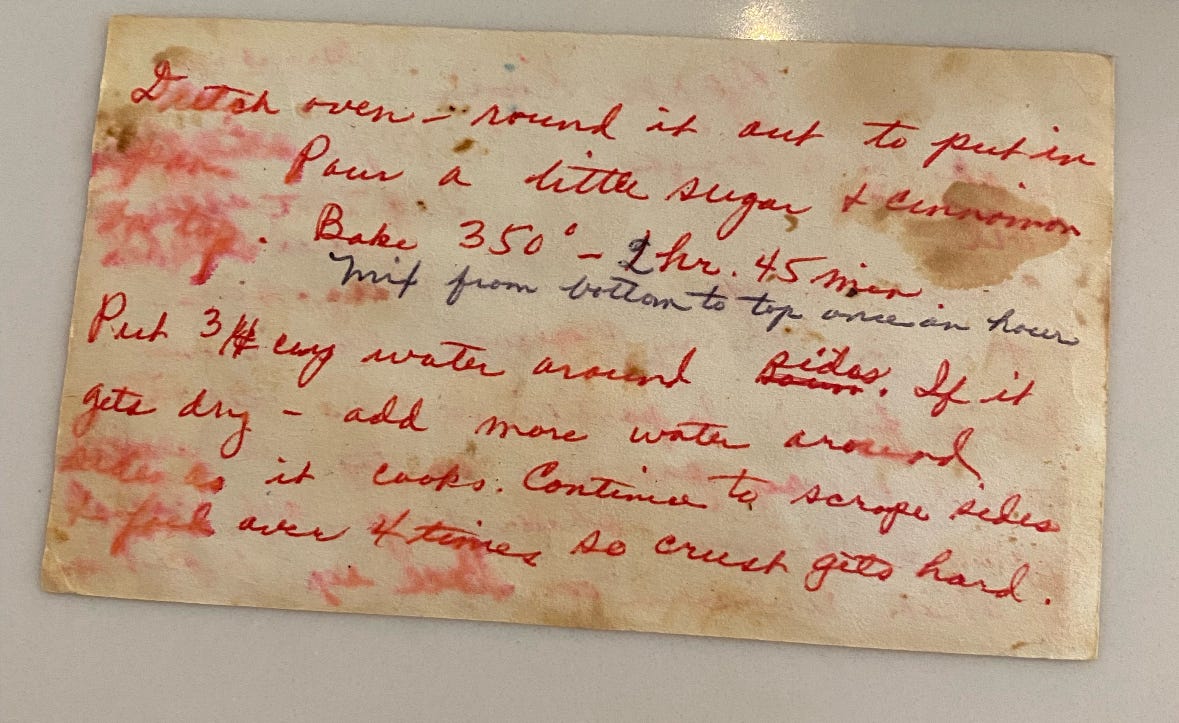 Dutch oven - round it out to put in
pan. Pour a little sugar & cinnamon
on top. Bake 350° - 2 hr. 45 min.
Mix from bottom to top once an hour
Put 3/4 cup water around sides. If it
gets dry - add more water around
sides as it cooks. Continue to scrape sides
& fold over 4 times so crust gets hard.